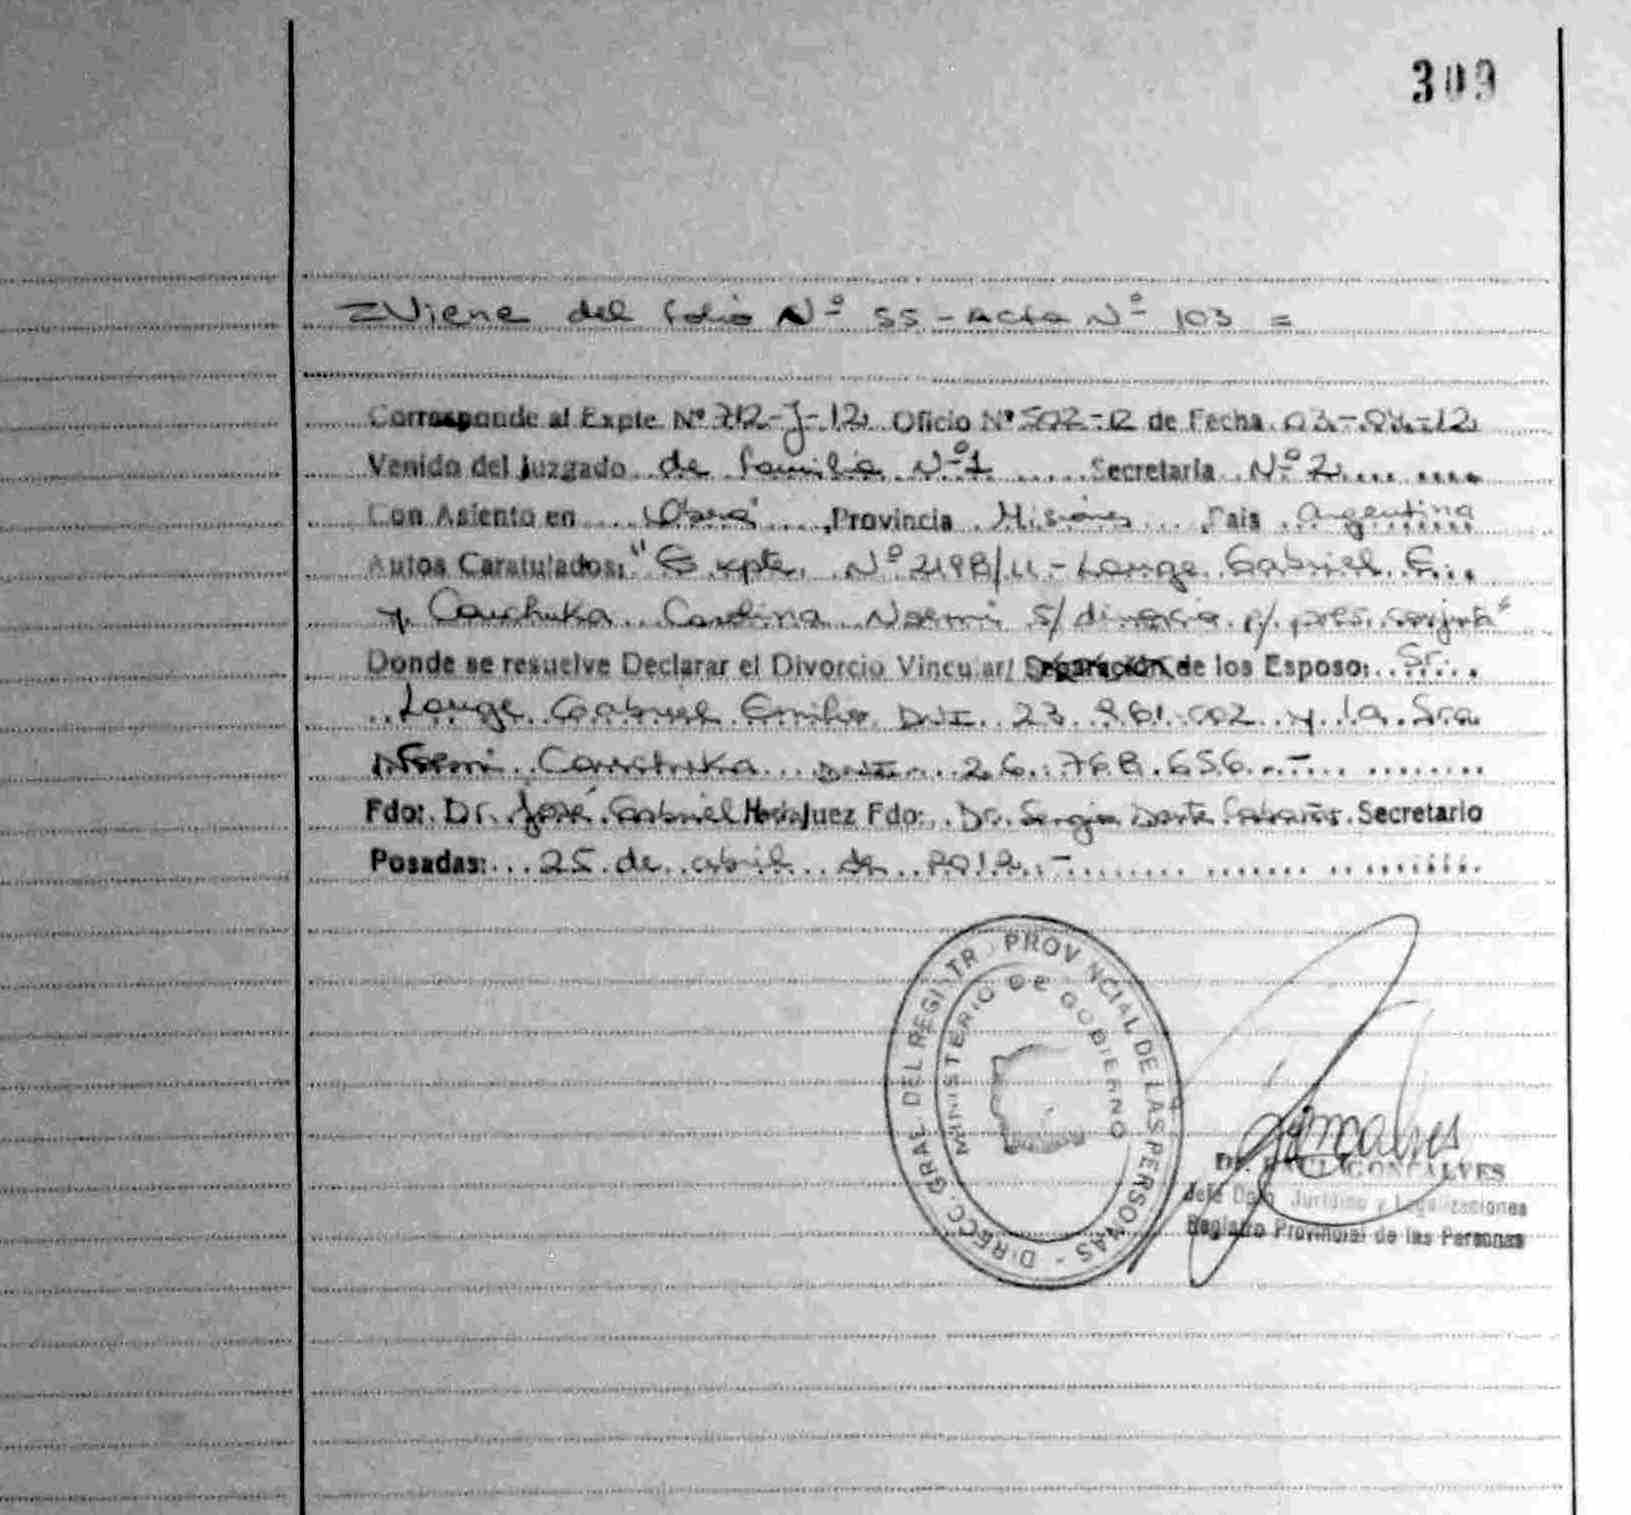 309
=Viene del folio Nº 55 - Acta Nº 103 =
Corresponde al Expte Nº 712-J-12 Oficio Nº 502-12 de Fecha 03-04-12
Venido del Juzgado de familia Nº 1 Secretaria Nº 2
Con Asiento en Oberá Provincia Misiones Pais Argentina
Autos Caratulados: "Expte. Nº 2198/11 - Lange Gabriel E.
y Cauchuka Carolina Noemi S/ divorcio p/ pres. conjunta"
Donde se resuelve Declarar el Divorcio Vincular/ Separación de los Esposo: Sr.
Lange Gabriel Emilio DNI 23.861.002 y la Sra
Noemi DNI 26.768.656.-
Fdo: Dr. José Gabriel Juez Fdo: Dr. Sergio Dante Secretario
Posadas: 25 de abril de 2012.-
DIRECC. GRAL. DEL REGISTR PROVINCIAL DE LAS PERSONAS -
MINISTERIO DE GOBIERNO
Goncalves
GONCALVES
Jefe Dpto Juridico y Legalizaciones
Registro Provincial de las Personas